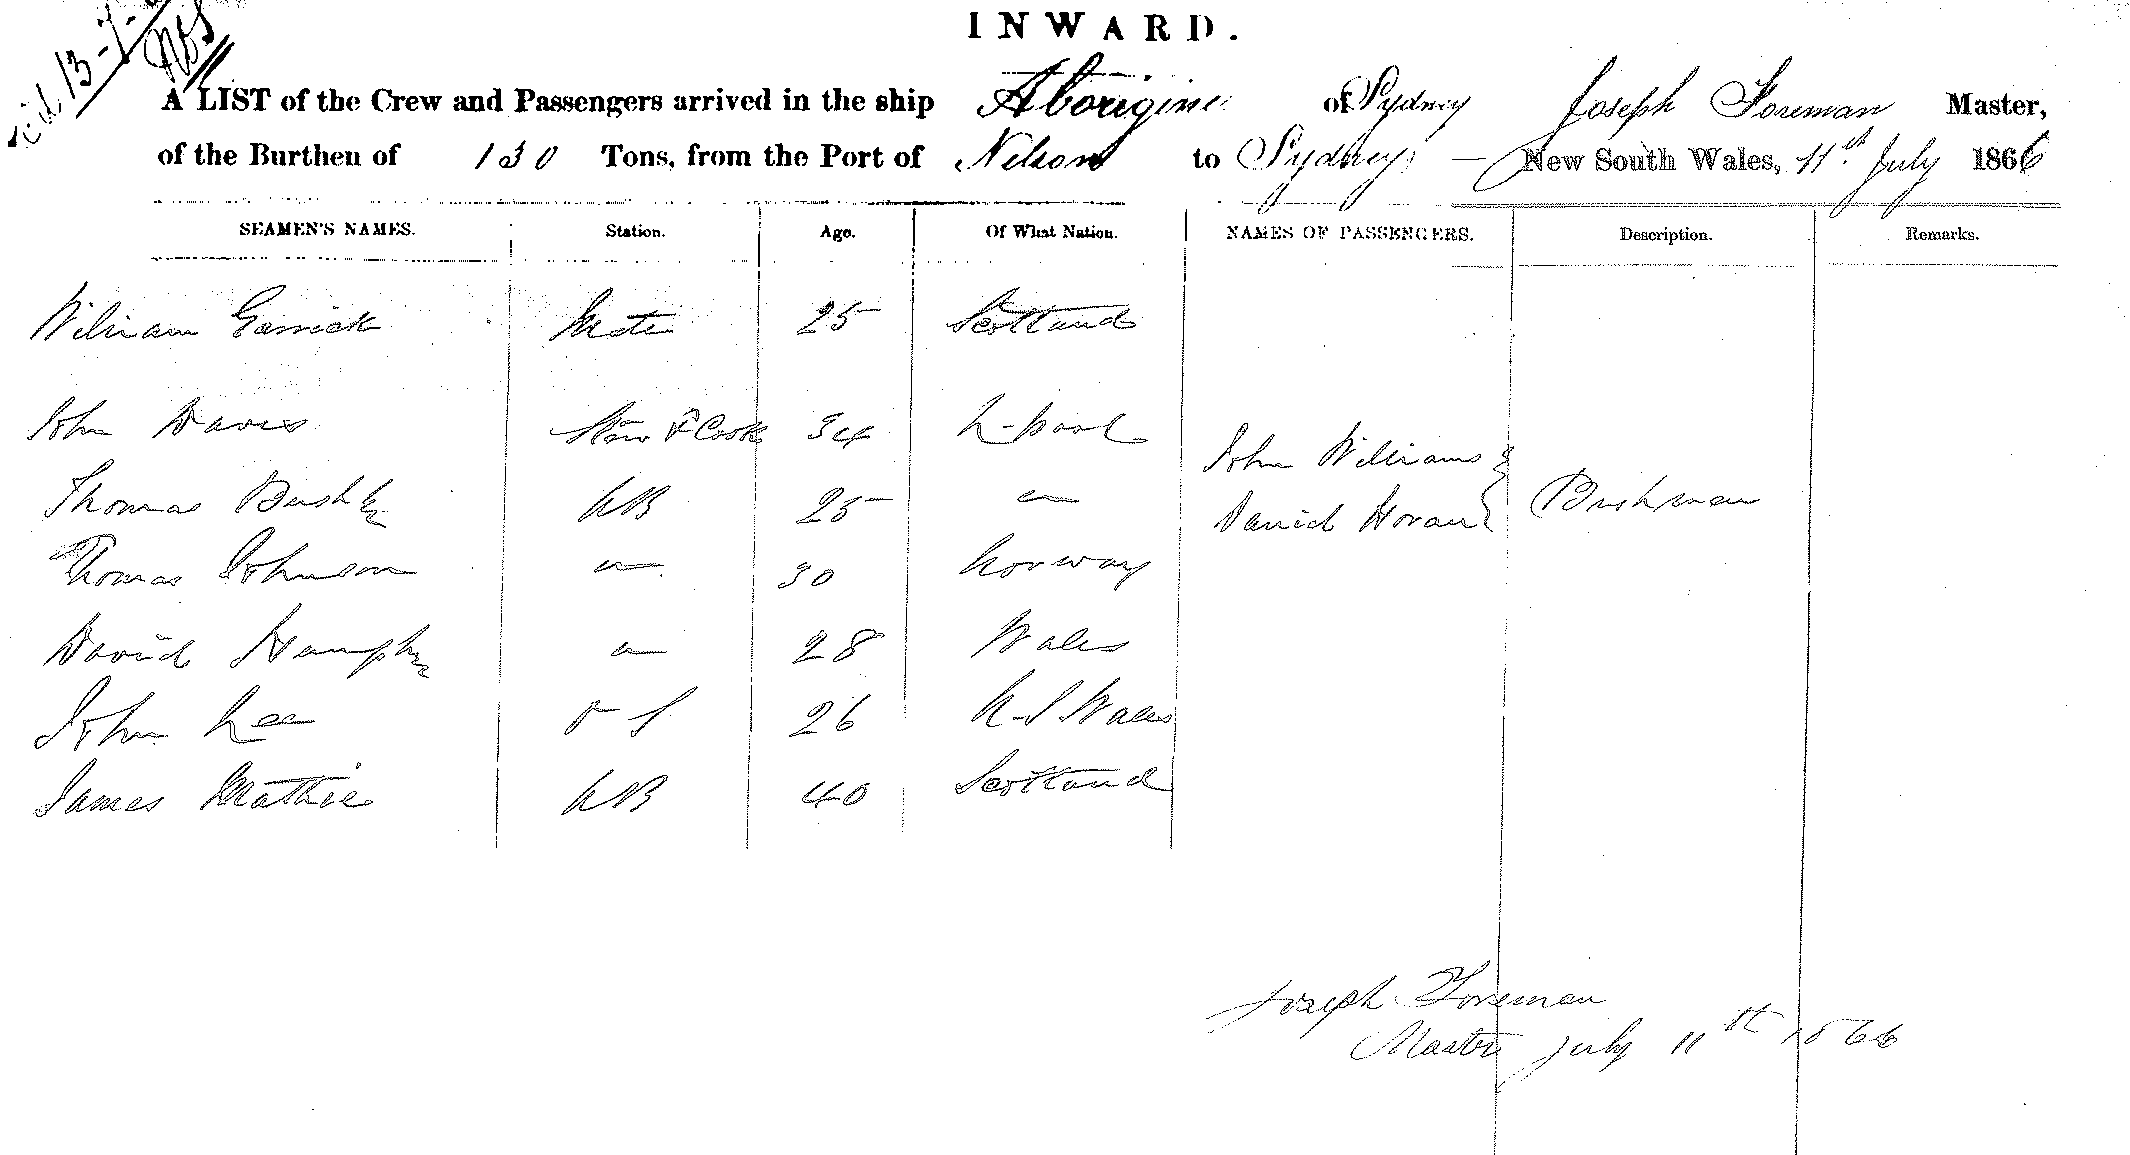 INWARD.
A LIST of the Crew and Passengers arrived in the ship Aborigine of Sydney Joseph Foreman Master,
of the Burthen of 130 Tons, from the Port of Nelson to Sydney — New South Wales, 11th July 1866
SEAMEN'S NAMES. Station. Age. Of What Nation. NAMES OF PASSENGERS. Description. Remarks.
William Garrick Mate 25 Scotland
John Davis Stew & Cook 34 L-pool
John Williams
Thomas Bushby AB 25 "
David Horan Bushman
Thomas Johnson " 30 Norway
David Humphr " 28 Wales
John Lee O S 26 N-S Wales
James Mathie AB 40 Scotland
Joseph Foreman
Master July 11th 1866